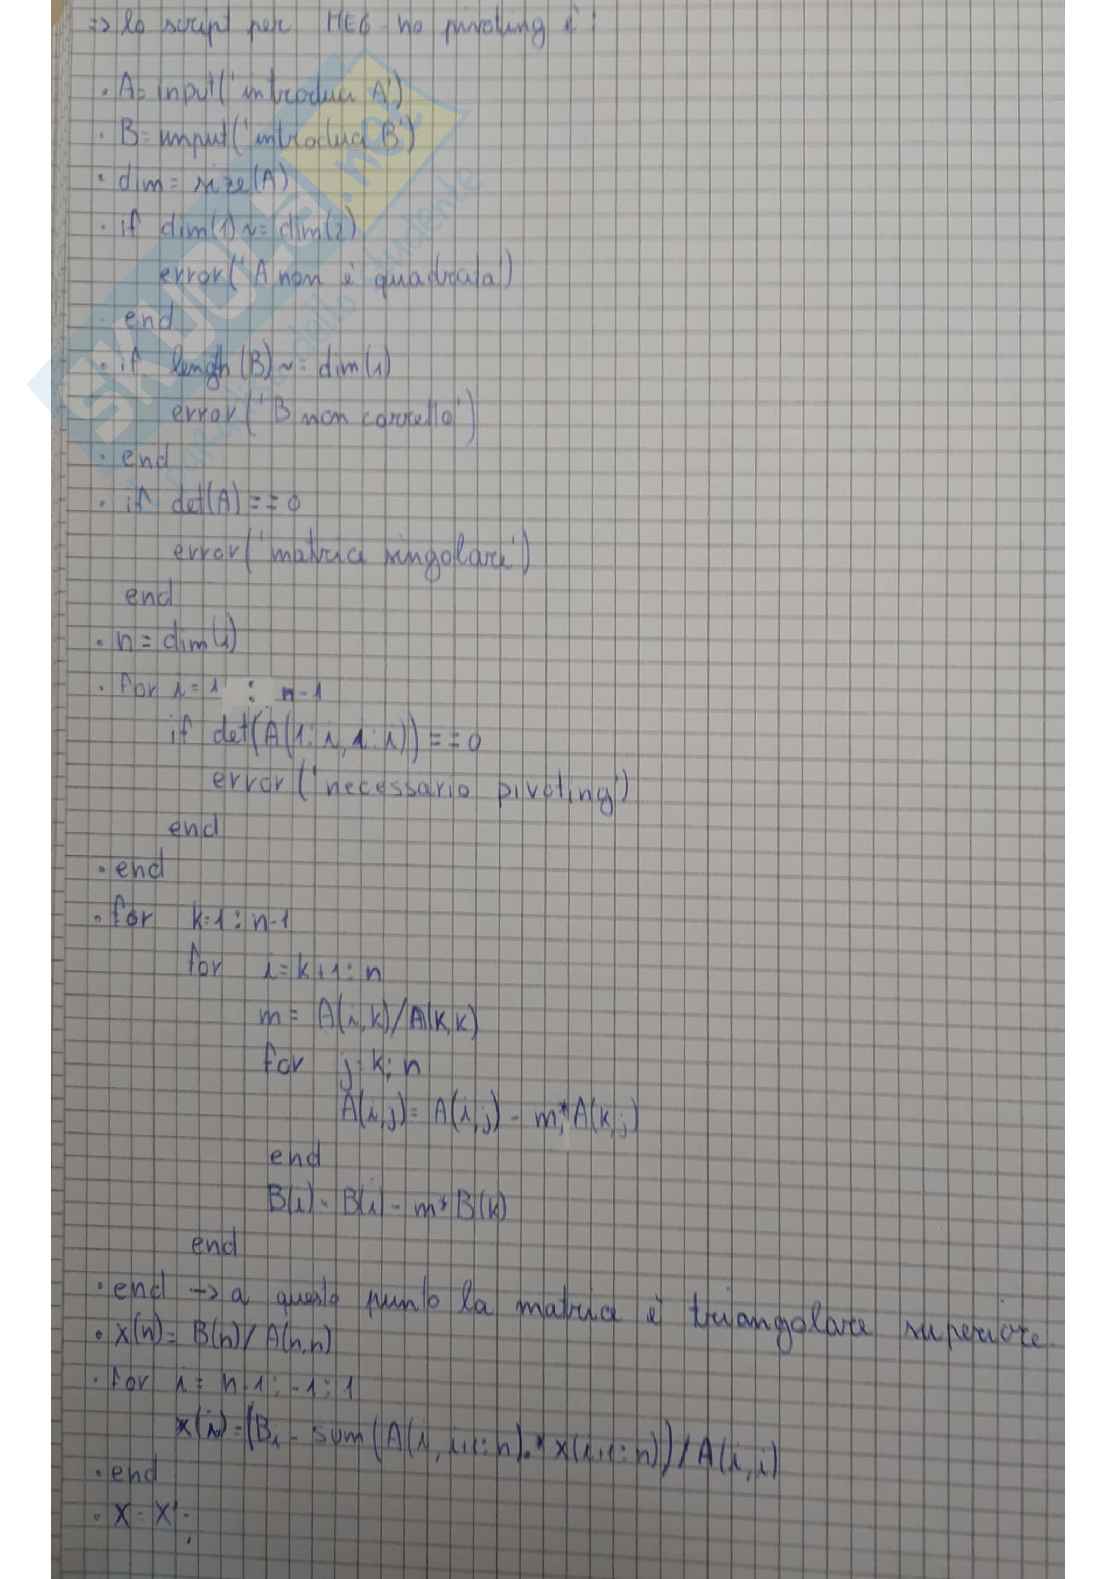 => lo script per MEG no pivoting è:
• A= input('introduci A')
• B= input('introduci B')
• dim = size(A)
• if dim(1) ~= dim(2)
error('A non è quadrata')
• end
• if lengh(B) ~= dim(1)
error('B non corretto')
• end
• if det(A) == 0
error('matrice singolare')
end
• n = dim(1)
• for i = 1 : n-1
if det(A(1:i, 1:i)) == 0
error('necessario pivoting')
end
• end
• for k=1 : n-1
for i = k+1 : n
m = A(i,k)/A(k,k)
for j=k:n
A(i,j) = A(i,j) - m*A(k,j)
end
B(i) = B(i) - m*B(k)
end
• end -> a questo punto la matrice è triangolare superiore.
• x(n) = B(n)/A(n,n)
• for i = n-1 : -1 : 1
x(i) = (Bi - sum(A(i, i+1:n).* x(i+1:n))/A(i,i)
• end
• x = x';
SKUOLA.net